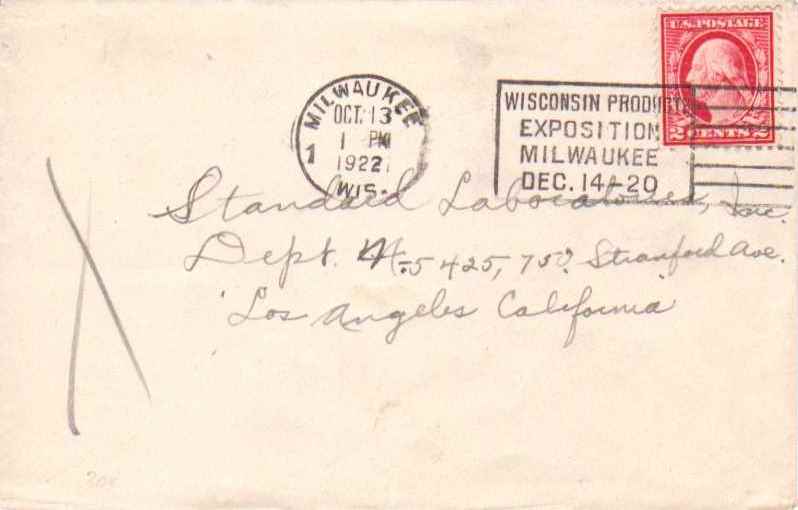 U.S. POSTAGE
2 CENTS 2
MILWAUKEE
OCT. 13
1 PM
1922
WIS.
1
WISCONSIN PRODUCTS
EXPOSITION
MILWAUKEE
DEC. 14-20
Standard Laboratories, Inc.
Dept. M-5 425, 750 Stanford Ave.
Los Angeles California